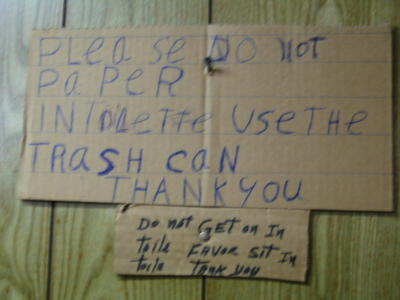 PLEaSE DO NOT
PaPER
INTOLETTE USETHE
TRASH CaN
THANKYOU
Do not GET on In
Toile FAVOR SIT In
Toile TANK YOU